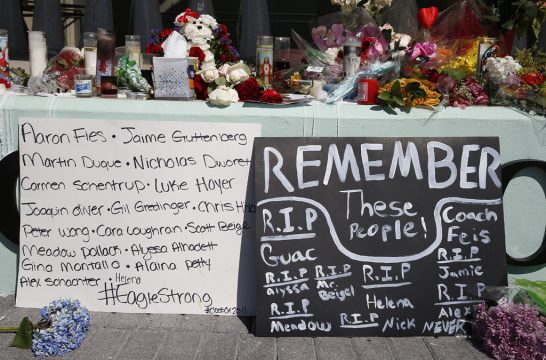 Aaron Fies · Jaime Guttenberg
Martin Duque · Nicholas Dworet
Carmen Schentrup · Luke Hoyer
Joaquin Oliver · Gil Gredinger · Chris Hixon
Peter Wang · Cara Loughran · Scott Beigel
Meadow Pollack · Alyssa Alhadeff
Gina Montalto · Alaina Petty
Alex Schachter · Helena
#EagleStrong
REMEMBER
These
People!
R.I.P
Guac
R.I.P
Alyssa
R.I.P
Mr.
Beigel
R.I.P
Helena
R.I.P
Meadow
R.I.P
Nick
Coach
Feis
R.I.P
Jamie
R.I.P
Alex
NEVER